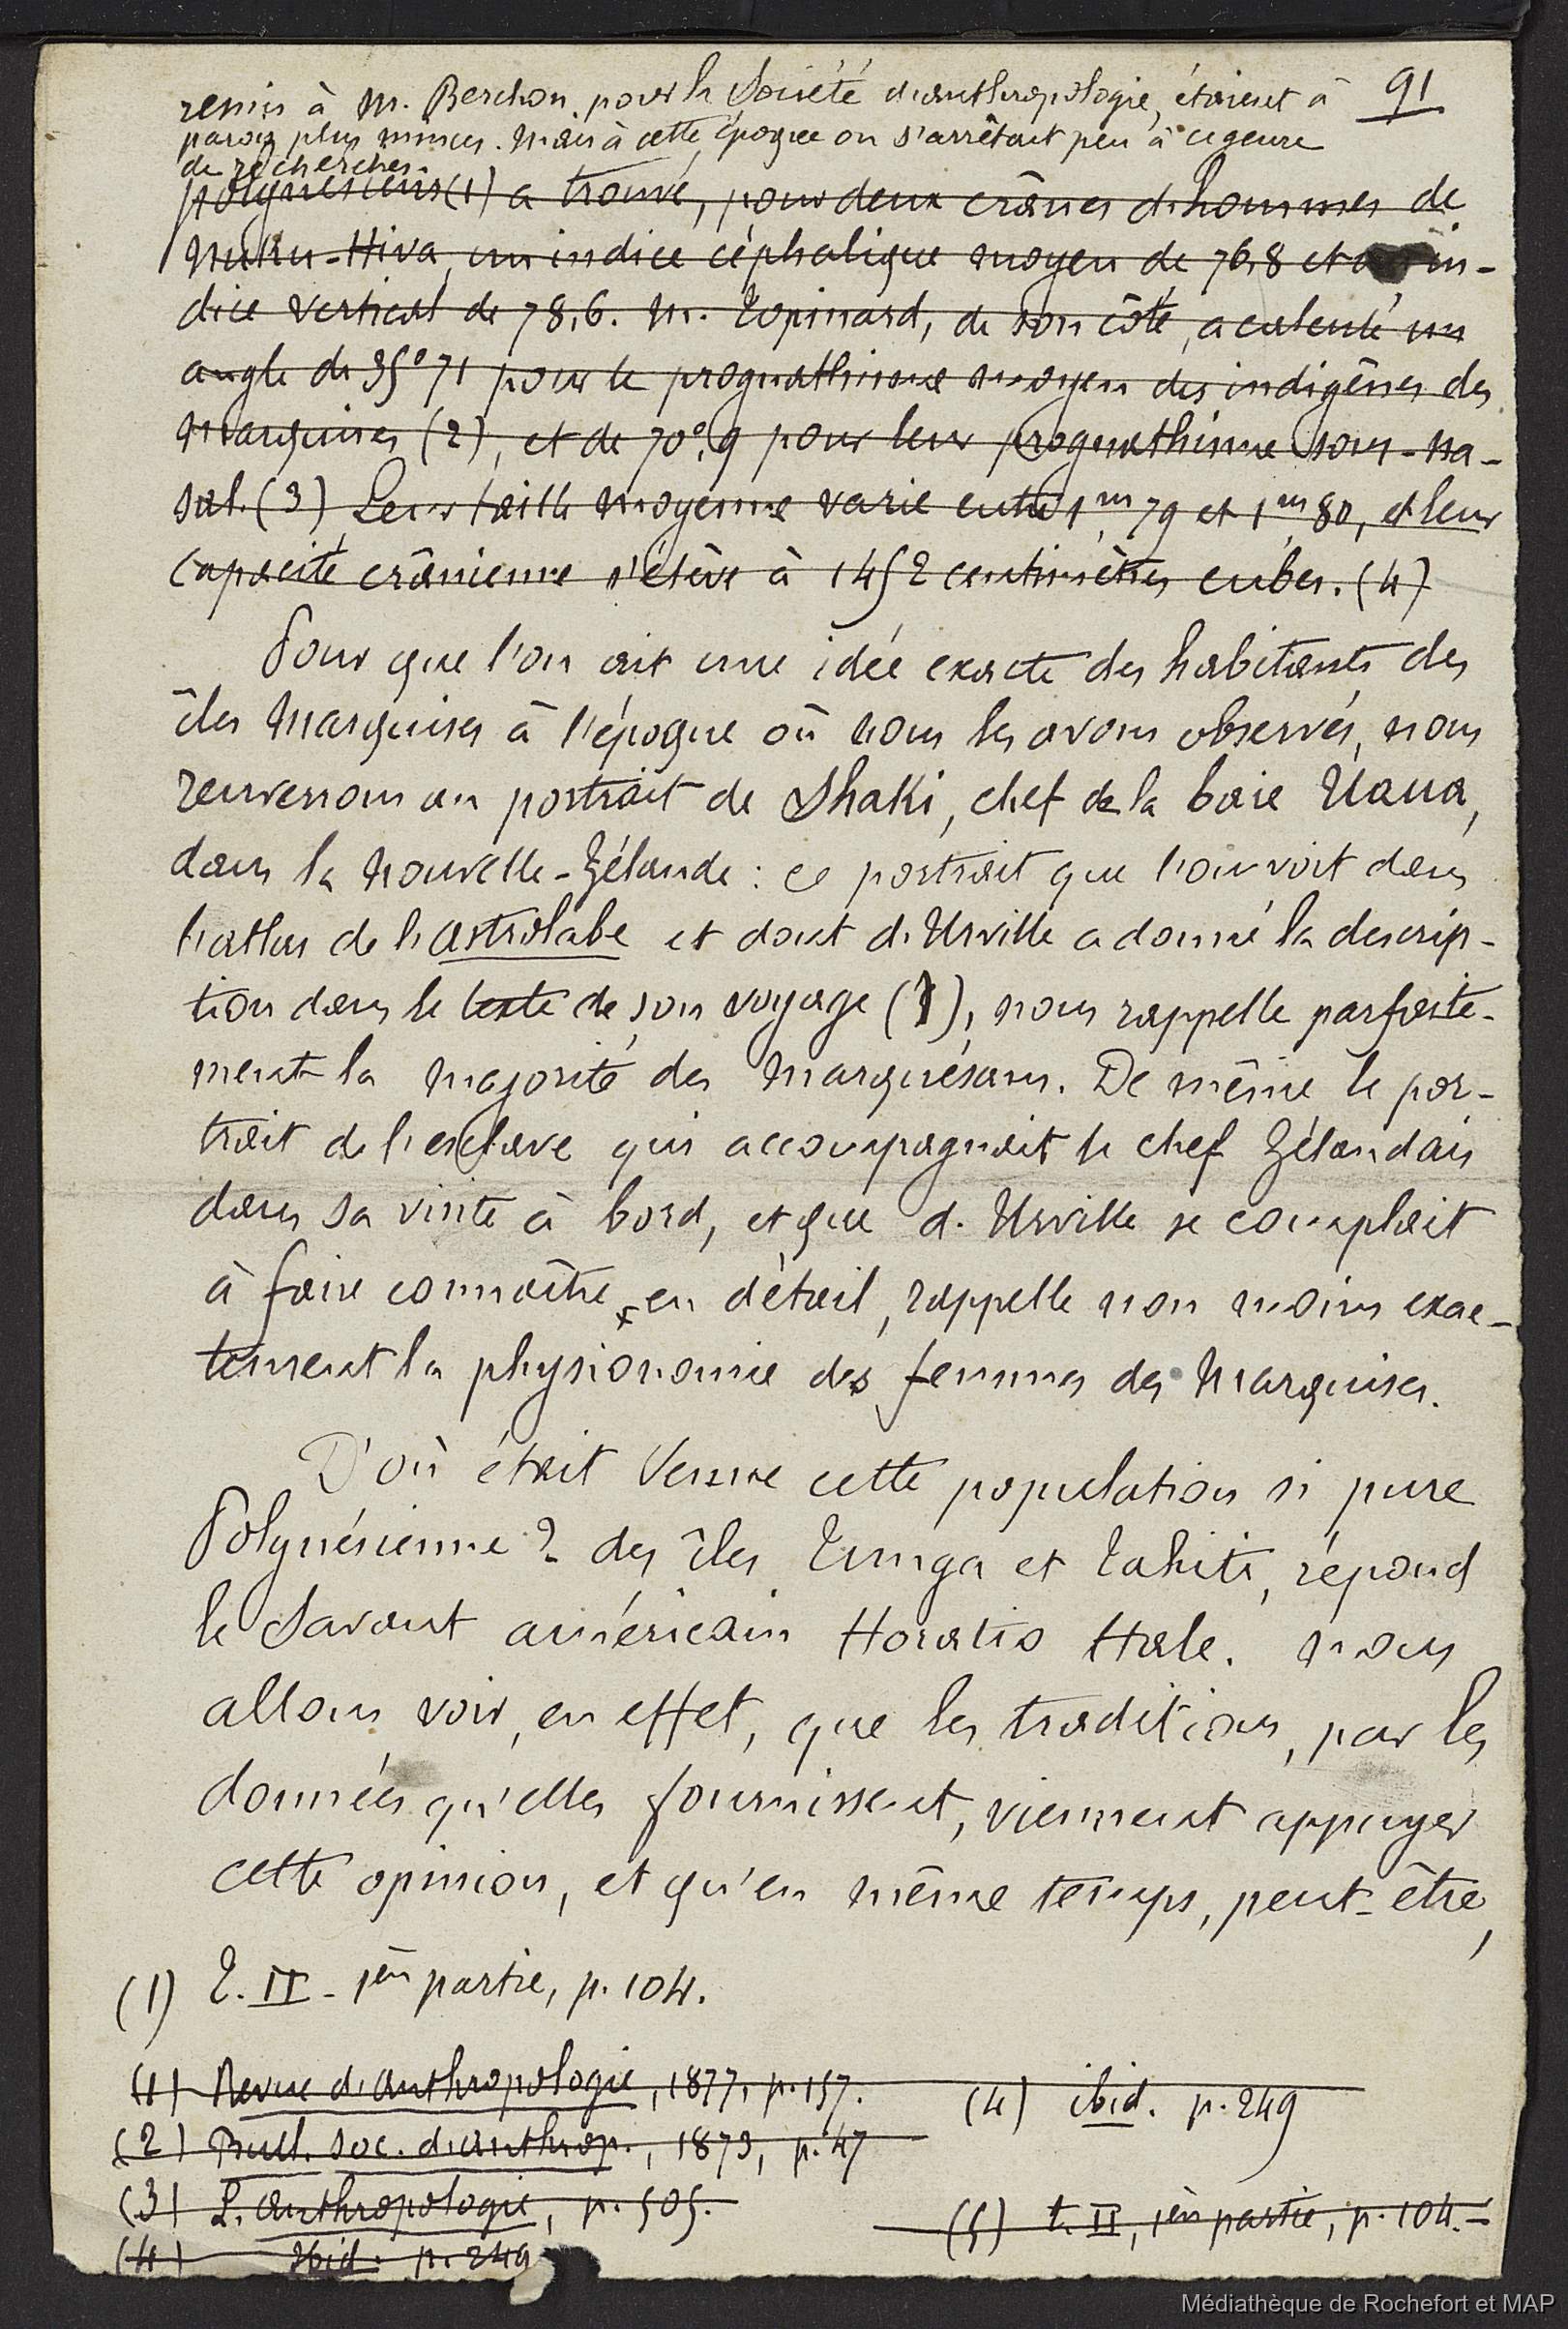 remis à M. Berchon, pour la Société d'anthropologie, étaient à 91
parois plus minces. Mais à cette époque on s'arrêtait peu à ce genre
de recherches.
polynésiens (1) a trouvé, pour deux crânes d'hommes de
Nuku-Hiva, un indice céphalique moyen de 76,8 et un in-
dice vertical de 78,6. M. Topinard, de son côté, a calculé un
angle de 35°71 pour le prognathisme moyen des indigènes des
Marquises (2), et de 70°,9 pour leur prognathisme sous-na-
sal. (3) Leur taille moyenne varie entre 1m,79 et 1m,80, et leur
capacité crânienne s'élève à 1452 centimètres cubes. (4)
Pour que l'on ait une idée exacte des habitants des
îles Marquises à l'époque où nous les avons observés, nous
renverrons au portrait de Shaki, chef de la baie Uaua,
dans la Nouvelle-Zélande : ce portrait que l'on voit dans
l'atlas de l'astrolabe et dont d'Urville a donné la descrip-
tion dans le texte de son voyage (1), nous rappelle parfaite-
ment la majorité des Marquésans. De même le por-
trait de l'esclave qui accompagnait le chef Zélandais
dans sa visite à bord, et que d'Urville se complait
à faire connaître en détail, rappelle non moins exac-
tement la physionomie des femmes des Marquises.
D'où était venue cette population si pure
Polynésienne ? des îles Tunga et Tahiti, répond
le Savant américain Horatio Hale. Nous
allons voir, en effet, que les traditions, par les
données qu'elles fournissent, viennent appuyer
cette opinion, et qu'en même temps, peut-être,
(1) T. II - 1ère partie, p. 104.
(1) Revue d'anthropologie, 1877, p. 157.
(4) ibid. p. 249
(2) Bull. soc. d'anthrop., 1873, p. 47
(3) L'anthropologie, p. 505.
(5) t. II, 1ère partie, p. 104.
(4) Ibid. p. 249
Médiathèque de Rochefort et MAP